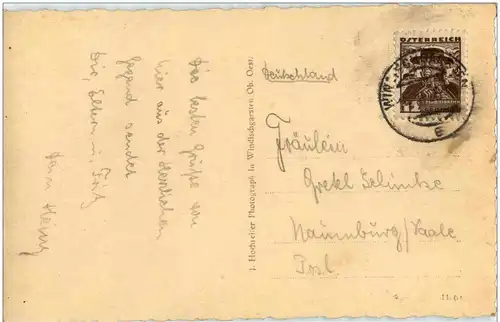 Die besten Grüße von
hier aus der herrlichen
Gegend sendet
Dir, Eltern u. Fritz
Dein Heinz
J. Hochreiter Photograph in Windischgarsten Ob. Oest.
Deutschland
ÖSTERREICH
Fräulein
Gretl Schimke
Naumburg/Saale
Postl.